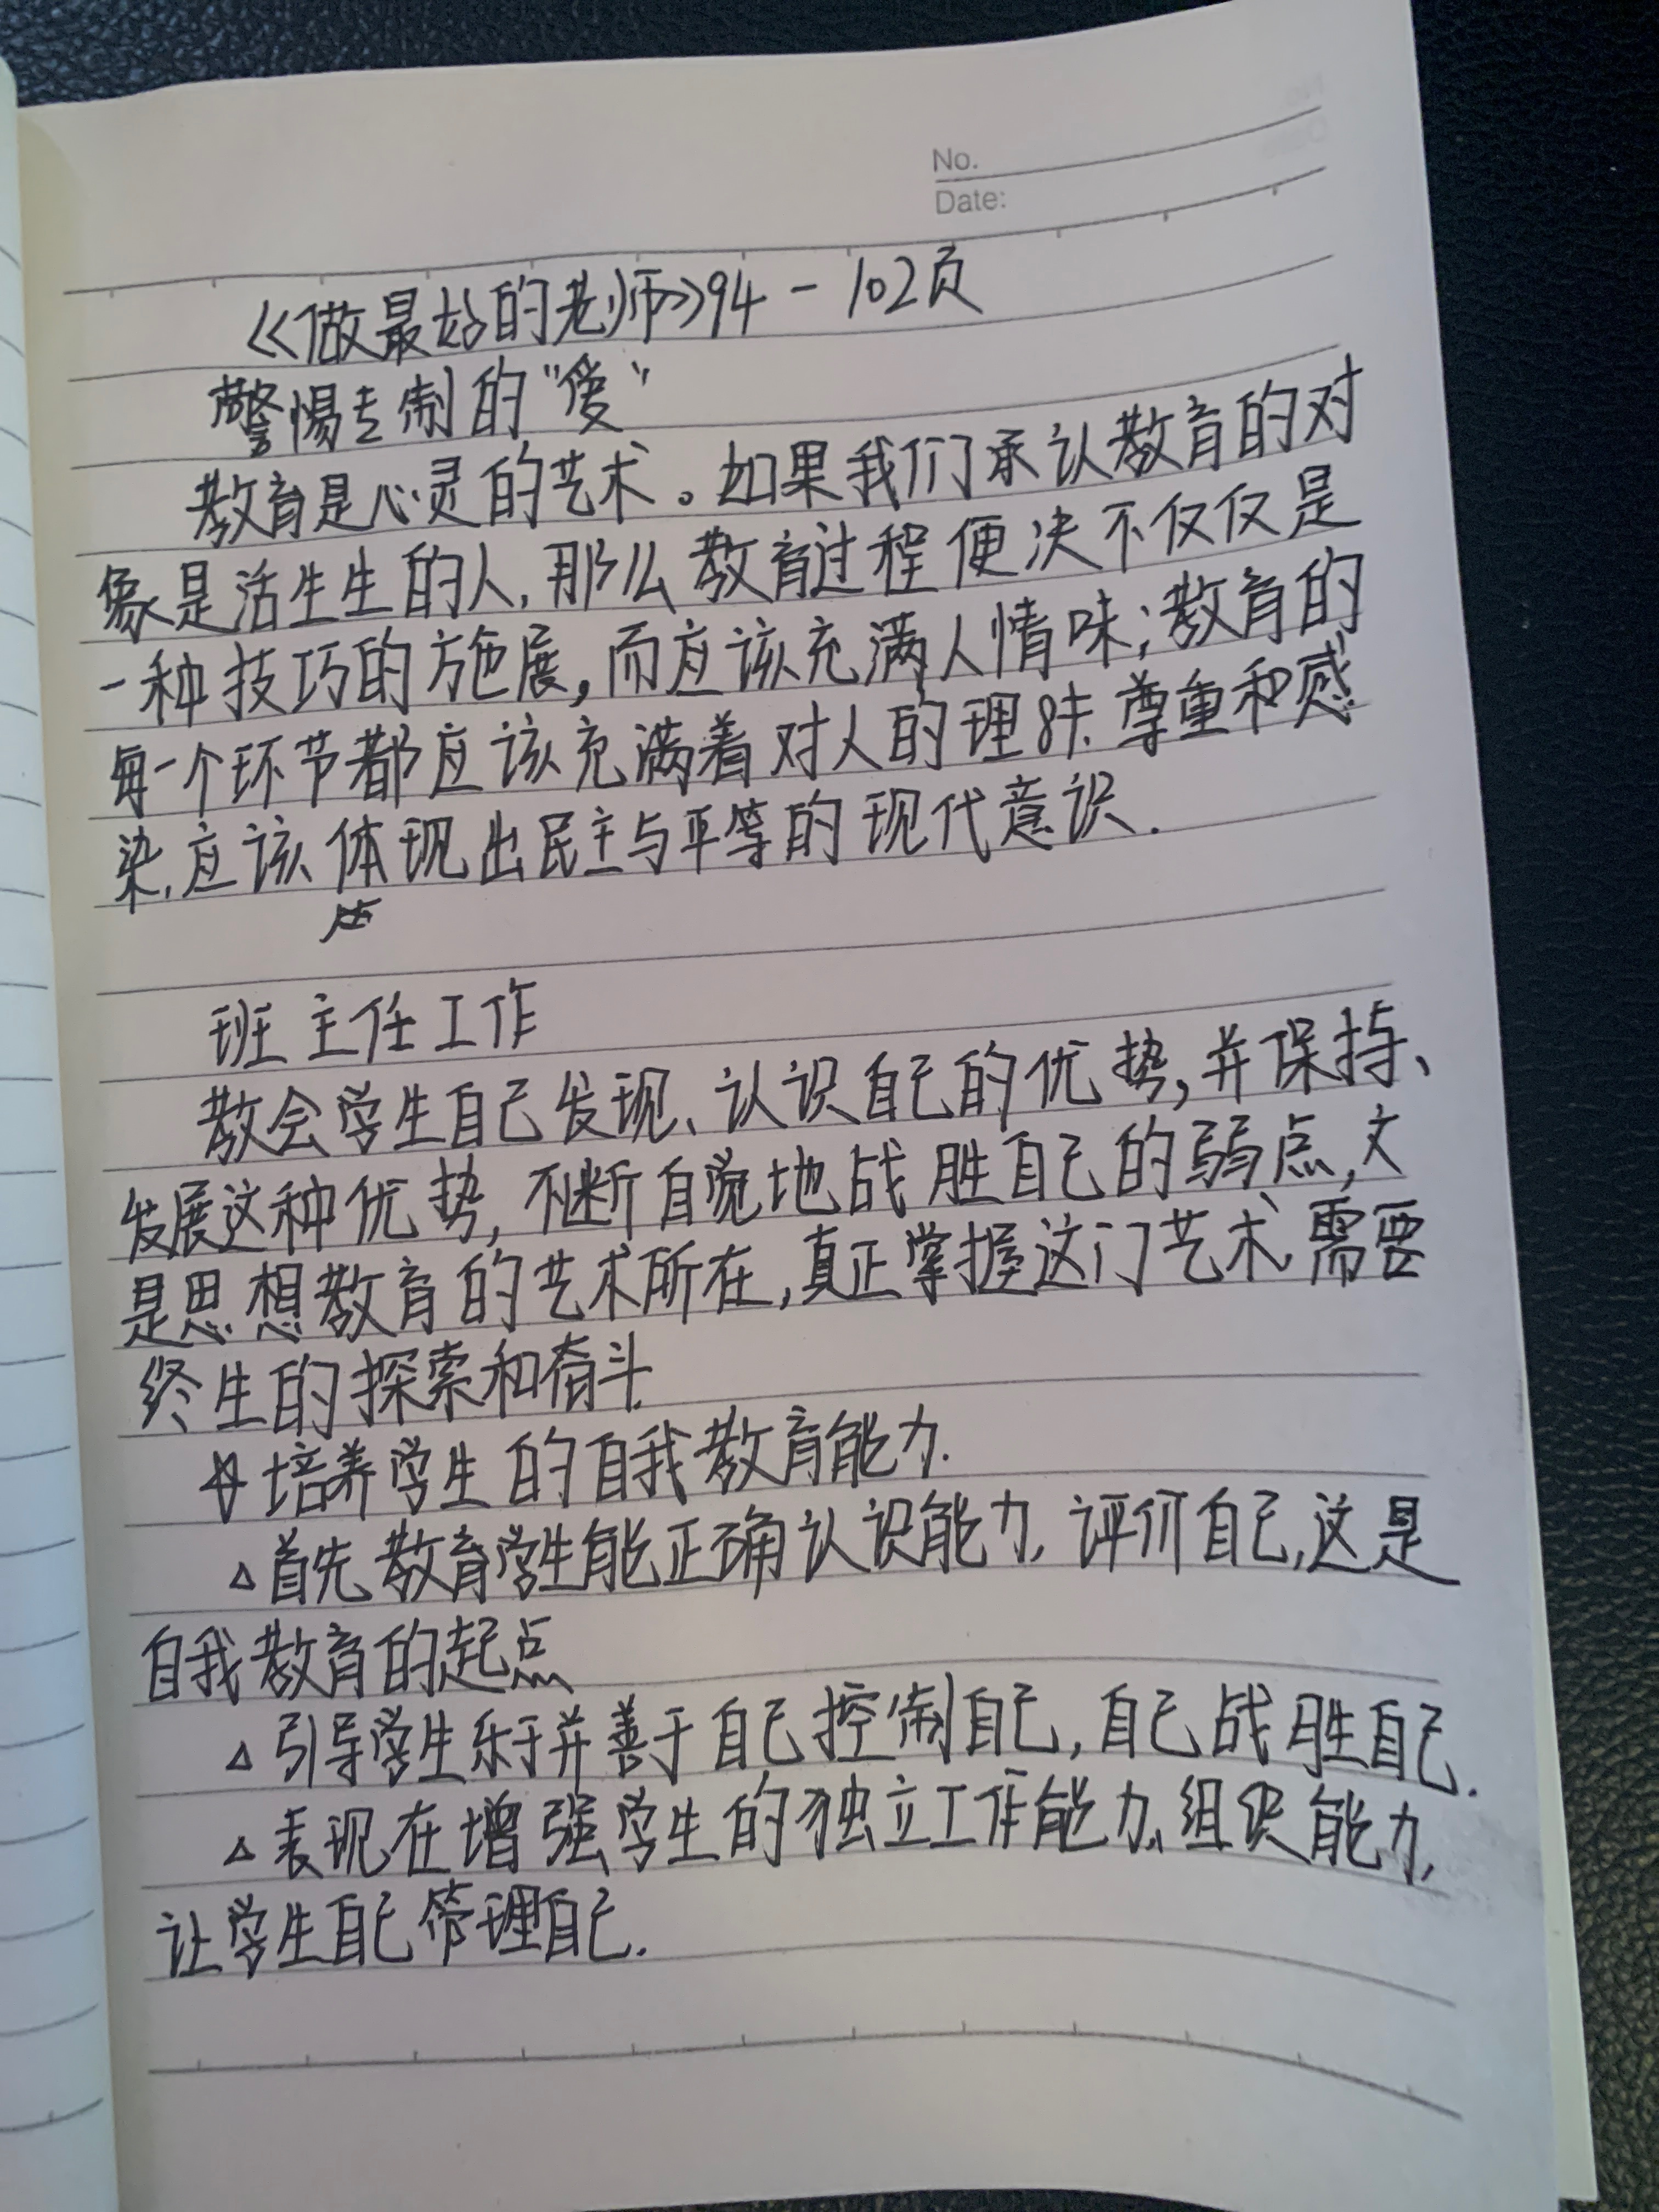 No.
Date:
《做最好的老师》94－102页
警惕专制的“爱”
教育是心灵的艺术。如果我们承认教育的对
象是活生生的人,那么教育过程便决不仅仅是
一种技巧的施展,而应该充满人情味;教育的
每一个环节都应该充满着对人的理解、尊重和感
染,应该体现出民主与平等的现代意识.
班主任工作
教会学生自己发现、认识自己的优势,并保持、
发展这种优势,不断自觉地战胜自己的弱点,文
是思想教育的艺术所在,真正掌握这门艺术,需要
终生的探索和奋斗.
☆培养学生的自我教育能力.
△首先教育学生能正确认识能力,评价自己,这是
自我教育的起点
△引导学生乐于并善于自己控制自己,自己战胜自己.
△表现在增强学生的独立工作能力、组织能力,
让学生自己管理自己.